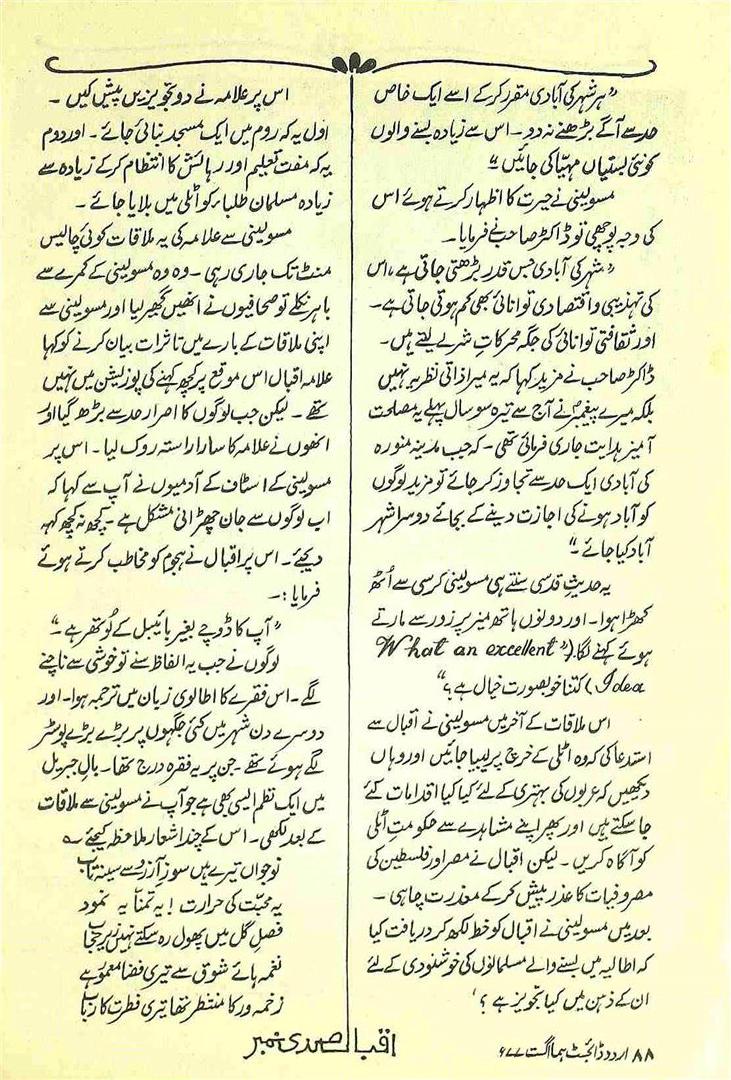 ”ہر شہر کی آبادی مقرر کر کے اسے ایک خاص
حد سے آگے بڑھنے نہ دو۔ اس سے زیادہ بسنے والوں
کو نئی بستیاں مہیّا کی جائیں“
مسولینی نے حیرت کا اظہار کرتے ہوئے اس
کی وجہ پوچھی تو ڈاکٹر صاحب نے فرمایا۔
”شہر کی آبادی جس قدر بڑھتی جاتی ہے، اس
کی تہذیبی و اقتصادی توانائی بھی کم ہوتی جاتی ہے۔
اور ثقافتی توانائی کی جگہ محرکاتِ شر لے لیتے ہیں۔
ڈاکٹر صاحب نے مزید کہا کہ یہ میرا ذاتی نظریہ نہیں
بلکہ میرے پیغمبرؐ نے آج سے تیرہ سو سال پہلے یہ مصلحت
آمیز ہدایت جاری فرمائی تھی۔ کہ جب مدینہ منورہ
کی آبادی ایک حد سے تجاوز کر جائے تو مزید لوگوں
کو آباد ہونے کی اجازت دینے کے بجائے دوسرا شہر
آباد کیا جائے۔“
یہ حدیثِ قدسی سنتے ہی مسولینی کرسی سے اُٹھ
کھڑا ہوا۔ اور دونوں ہاتھ میز پر زور سے مارتے
ہوئے کہنے لگا۔ (”What an excellent
Idea) کتنا خوبصورت خیال ہے؟“
اس ملاقات کے آخر میں مسولینی نے اقبال سے
استدعا کی کہ وہ اٹلی کے خرچ پر لیبیا جائیں اور وہاں
دیکھیں کہ عربوں کی بہتری کے لئے کیا کیا اقدامات کئے
جا سکتے ہیں اور پھر اپنے مشاہدے سے حکومتِ اٹلی
کو آگاہ کریں۔ لیکن اقبال نے مصر اور فلسطین کی
مصروفیات کا عذر پیش کر کے معذرت چاہی۔
بعد میں مسولینی نے اقبال کو خط لکھ کر دریافت کیا
کہ اطالیہ میں بسنے والے مسلمانوں کی خوشنودی کے لئے
ان کے ذہن میں کیا تجویز ہے؟‘
اس پر علامہ نے دو تجویزیں پیش کیں۔
اول یہ کہ روم میں ایک مسجد بنائی جائے۔ اور دوم
یہ کہ مفت تعلیم اور رہائش کا انتظام کر کے زیادہ سے
زیادہ مسلمان طلباء کو اٹلی میں بلایا جائے۔
مسولینی سے علامہ کی یہ ملاقات کوئی چالیس
منٹ تک جاری رہی۔ وہ وہ مسولینی کے کمرے سے
باہر نکلے تو صحافیوں نے انھیں گھیر لیا اور مسولینی سے
اپنی ملاقات کے بارے میں تاثرات بیان کرنے کو کہا
علامہ اقبال اس موقع پر کچھ کہنے کی پوزیشن میں نہیں
تھے۔ لیکن جب لوگوں کا اصرار حد سے بڑھ گیا اور
انھوں نے علامہ کا سارا راستہ روک لیا۔ اس پر
مسولینی کے اسٹاف کے آدمیوں نے آپ سے کہا کہ
اب لوگوں سے جان چھڑانی مشکل ہے۔ کچھ نہ کچھ کہہ
دیجئے۔ اس پر اقبال نے ہجوم کو مخاطب کرتے ہوئے
فرمایا:۔
”آپ کا ڈوچے بغیر بائیبل کے لُوتھر ہے۔“
لوگوں نے جب یہ الفاظ سنے تو خوشی سے ناچنے
لگے۔ اس فقرے کا اطالوی زبان میں ترجمہ ہوا۔ اور
دوسرے دن شہر میں کئی جگہوں پر بڑے بڑے پوسٹر
لگے ہوئے تھے۔ جن پر یہ فقرہ درج تھا۔ بالِ جبریل
میں ایک نظم ایسی بھی ہے جو آپ نے مسولینی سے ملاقات
کے بعد لکھی۔ اس کے چند اشعار ملاحظہ کیجئے ؎
نوجواں تیرے ہیں سوزِ آرزو سے سینہ تاب
یہ محبّت کی حرارت! یہ تمنّا یہ نمود
فصلِ گل میں پھول رہ سکتے نہیں زیرِ حجاب
نغمہ ہائے شوق سے تیری فضا معمور ہے
زخمہ ور کا منتظر تھا تیری فطرت کا رباب
۸۸ اردو ڈائجسٹ ہما اگست ۷۷ء
اقبال صدی نمبر